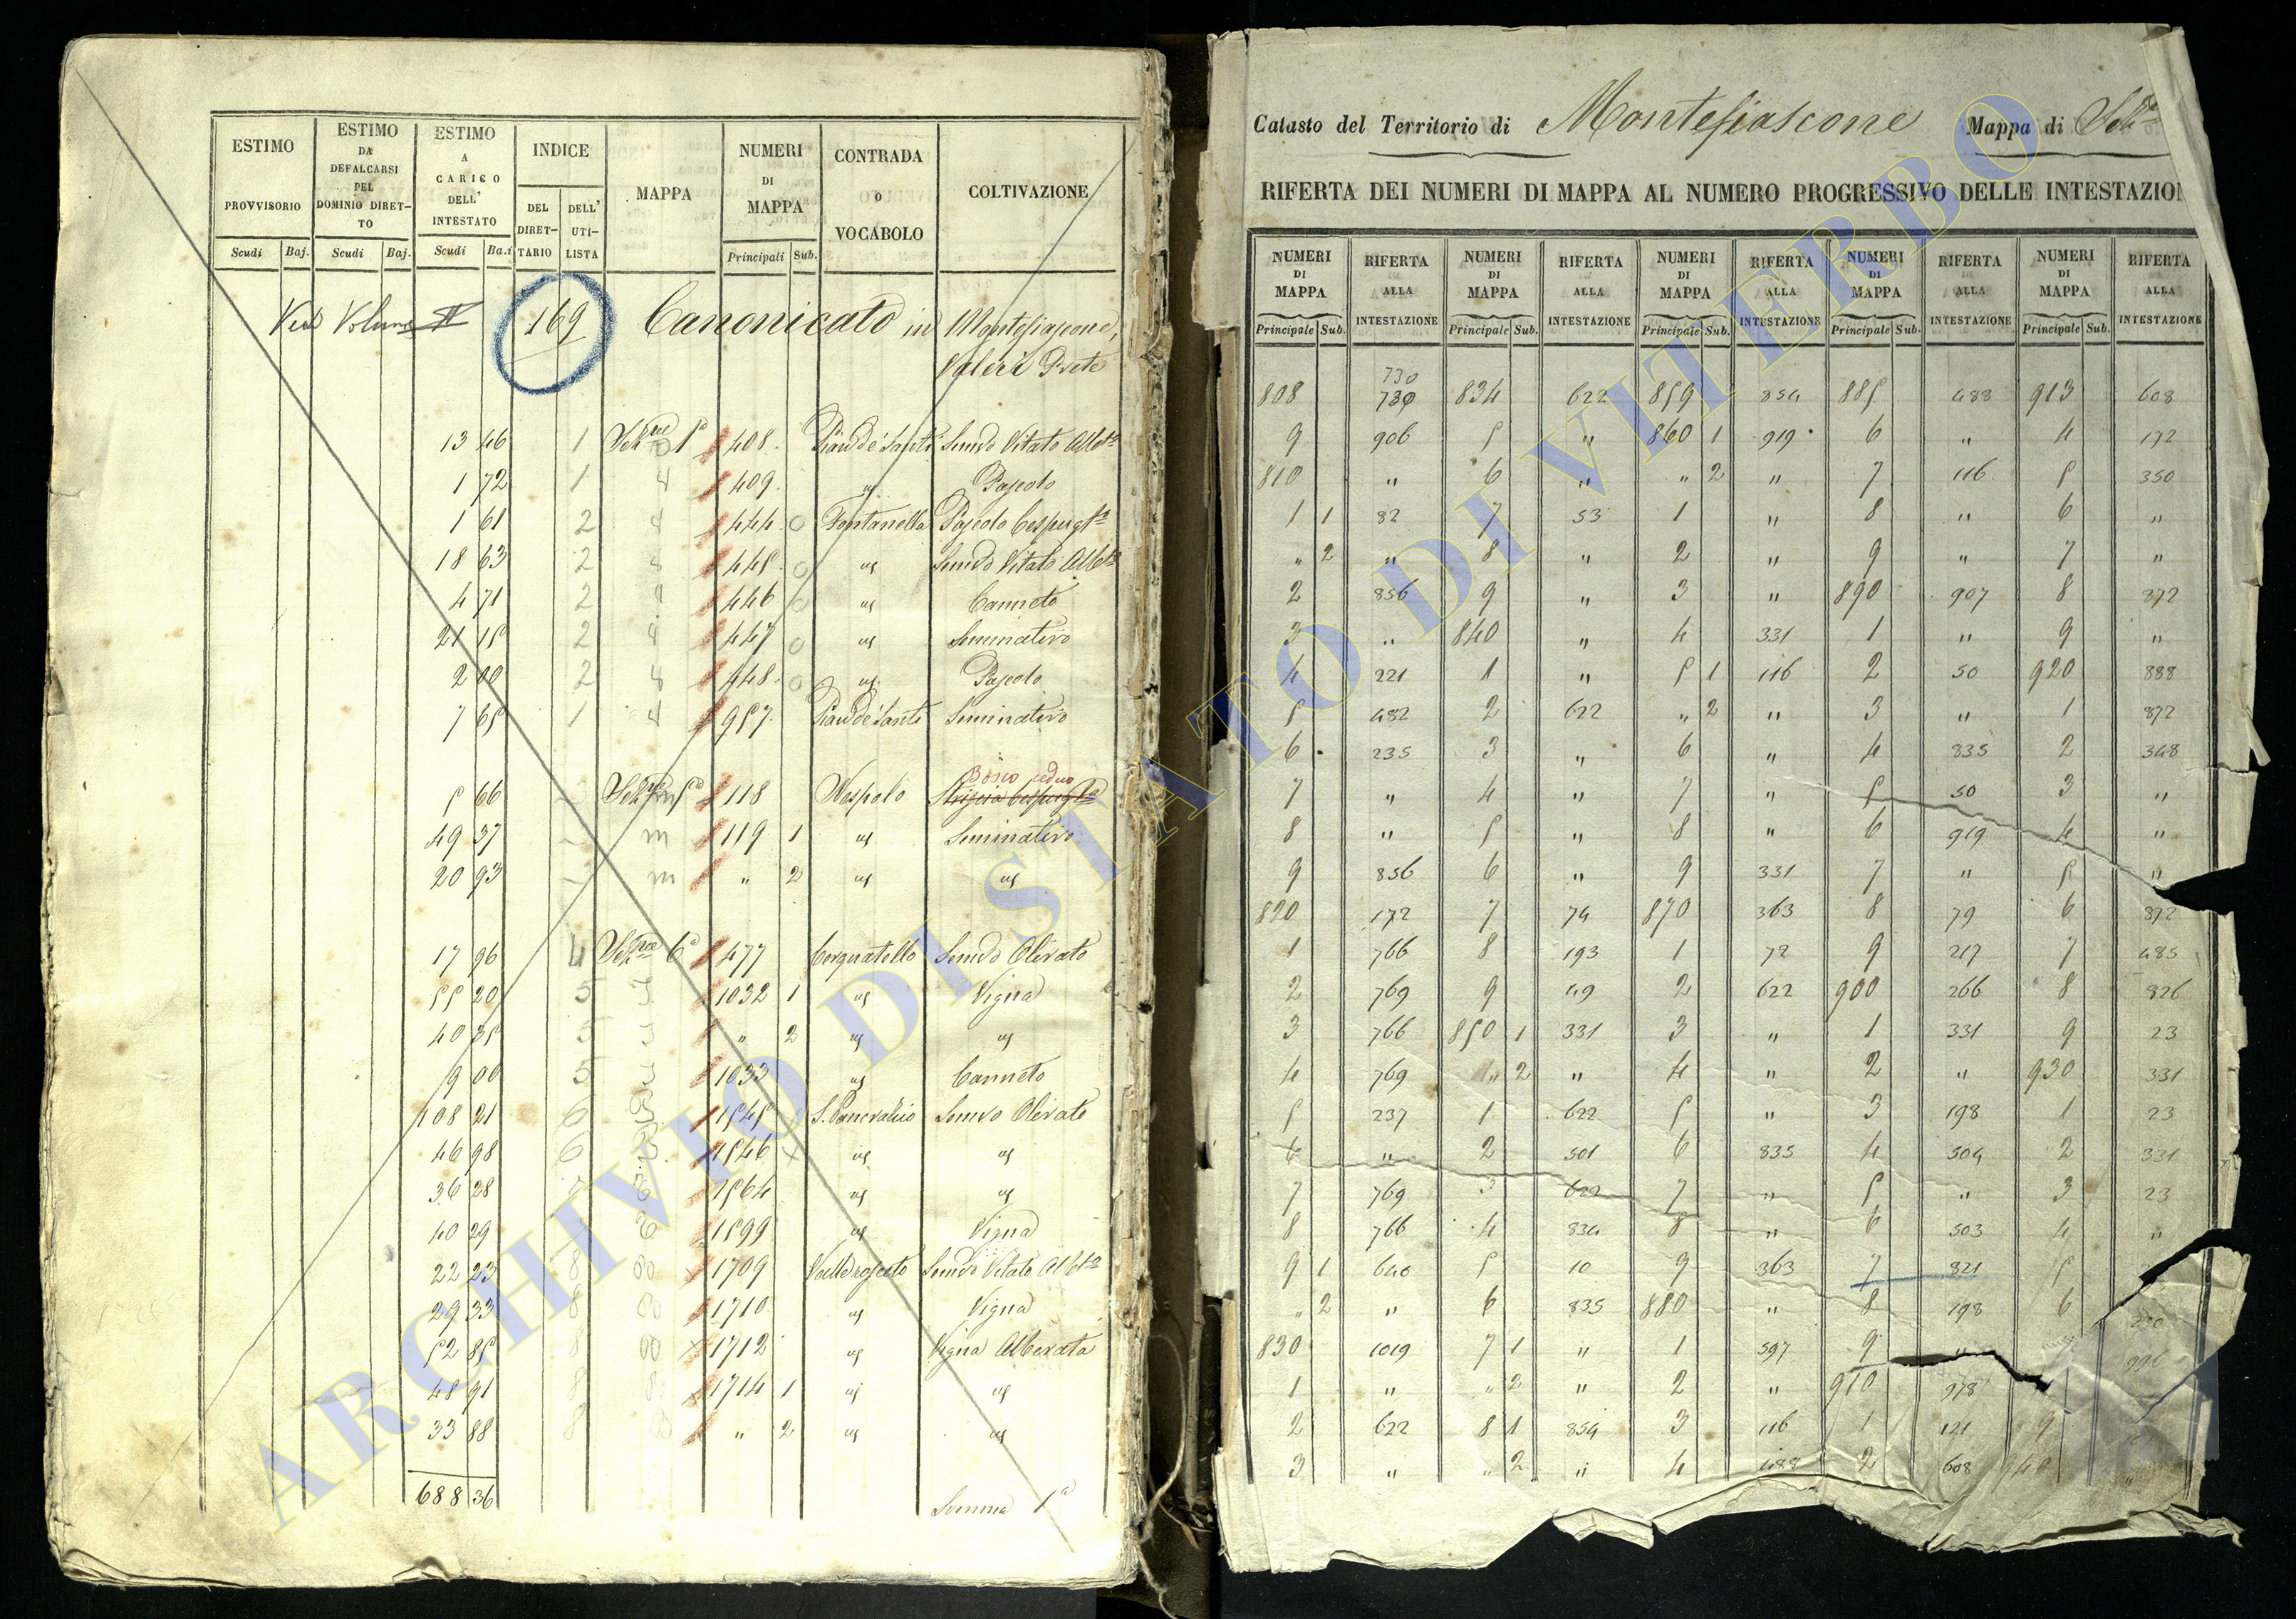 ESTIMO PROVVISORIO
ESTIMO DA DEFALCARSI PEL DOMINIO DIRET-TO
ESTIMO A CARICO DELL' INTESTATO
INDICE
DEL DIRET-TARIO
DELL' UTI-LISTA
MAPPA
NUMERI DI MAPPA
CONTRADA o VOCABOLO
COLTIVAZIONE
Scudi Baj. Scudi Baj. Scudi Ba.i
Principali Sub.
169 Canonicato in Montefiascone,
Valeri Prete
13 46 1 408
1 72 1 4 409 Pascolo
1 61 2 4 444 0 Fontanella Pascolo
18 63 2 445 0 Vitato
4 71 2 4 446 0 Canneto
21 15 2 4 447 0 Seminativo
2 00 2 4 448 0 Pascolo
7 65 1 4 957 Seminativo
Bosco ceduo
5 66 118 Nespolo
49 37 m 119 1 Seminativo
20 93 m " 2
17 96 4 477 Cerquatello Olivato
55 20 5 1032 1 Vigna
40 85 5 " 2
9 00 5 1033 Canneto
108 21 6 1545 S. Pancrazio Olivato
46 98 6 1546
36 28 1564
40 29 1599 Vigna
22 23 8 1709 Vitato
29 33 8 1710 Vigna
52 85 8 1712 Vigna Alberata
48 91 8 1714 1
33 88 8 " 2
688 36 Somma 1a
Catasto del Territorio di Montefiascone Mappa di
RIFERTA DEI NUMERI DI MAPPA AL NUMERO PROGRESSIVO DELLE INTESTAZION
NUMERI DI MAPPA RIFERTA ALLA INTESTAZIONE NUMERI DI MAPPA RIFERTA ALLA INTESTAZIONE NUMERI DI MAPPA RIFERTA ALLA INTESTAZIONE NUMERI DI MAPPA RIFERTA ALLA INTESTAZIONE NUMERI DI MAPPA RIFERTA ALLA INTESTAZIONE
Principale Sub. Principale Sub. Principale Sub. Principale Sub. Principale Sub.
730
808 730 834 622 859 854 885 488 913 608
9 906 5 " 860 1 919 6 " 4 172
810 " 6 " " 2 " 7 116 5 350
1 1 82 7 53 1 " 8 " 6 "
" 2 " 8 " 2 " 9 " 7 "
2 856 9 " 3 " 890 907 8 872
3 " 840 " 4 331 1 " 9 "
4 221 1 " 5 1 116 2 50 920 888
5 482 2 622 " 2 " 3 " 1 872
6 235 3 " 6 " 4 835 2 348
7 " 4 " 7 " 5 50 3 "
8 " 5 " 8 " 6 919 4 "
9 856 6 " 9 331 7 " 5 "
820 172 7 74 870 363 8 79 6 872
1 766 8 193 1 72 9 217 7 485
2 769 9 49 2 622 900 266 8 826
3 766 850 1 331 3 " 1 331 9 23
4 769 " 2 " 4 " 2 " 930 331
5 237 1 622 5 " 3 198 1 23
6 " 2 501 6 835 4 504 2 331
7 769 3 622 7 " 5 " 3 23
8 766 4 834 8 " 6 503 4 "
9 1 640 5 10 9 363 7 821 5
" 2 " 6 835 880 " 8 198 6
830 1019 7 1 " 1 597 9 "
1 " " 2 " 2 " 910 978
2 622 8 1 854 3 116 1 121 9
3 " " 2 " 4 488 2 608 940 "
ARCHIVIO DI STATO DI VITERBO